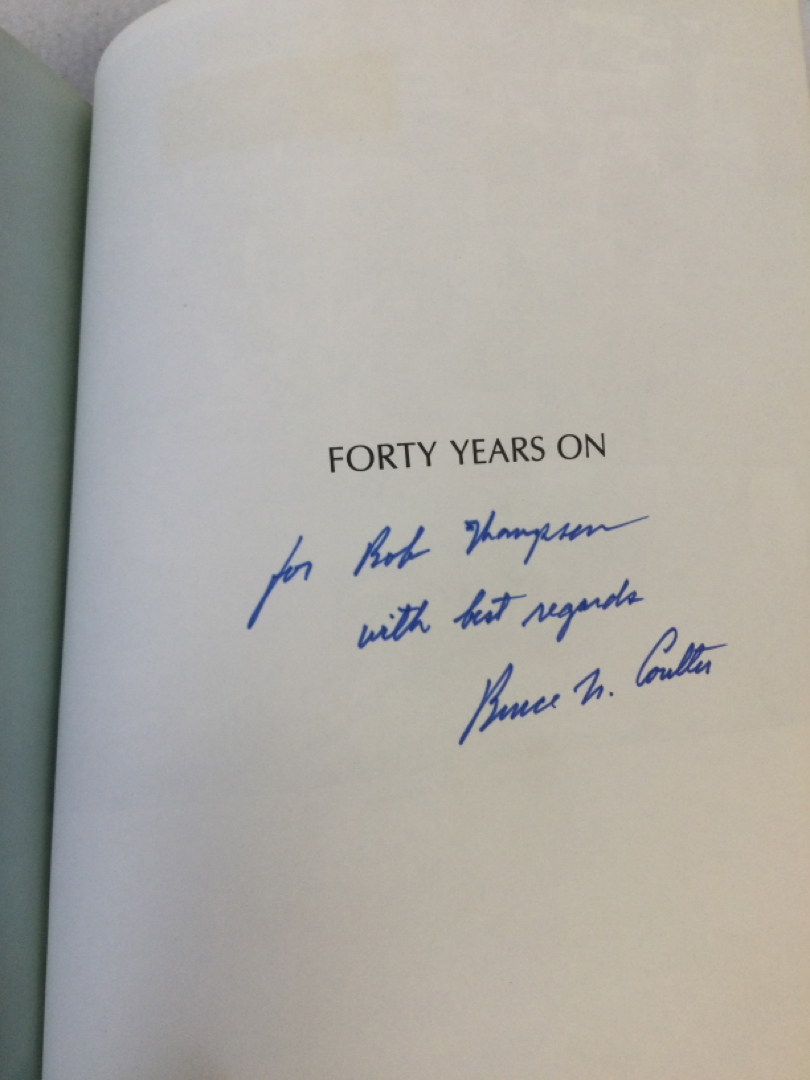 FORTY YEARS ON
for Bob Thompson
with best regards
Bruce N. Coulter